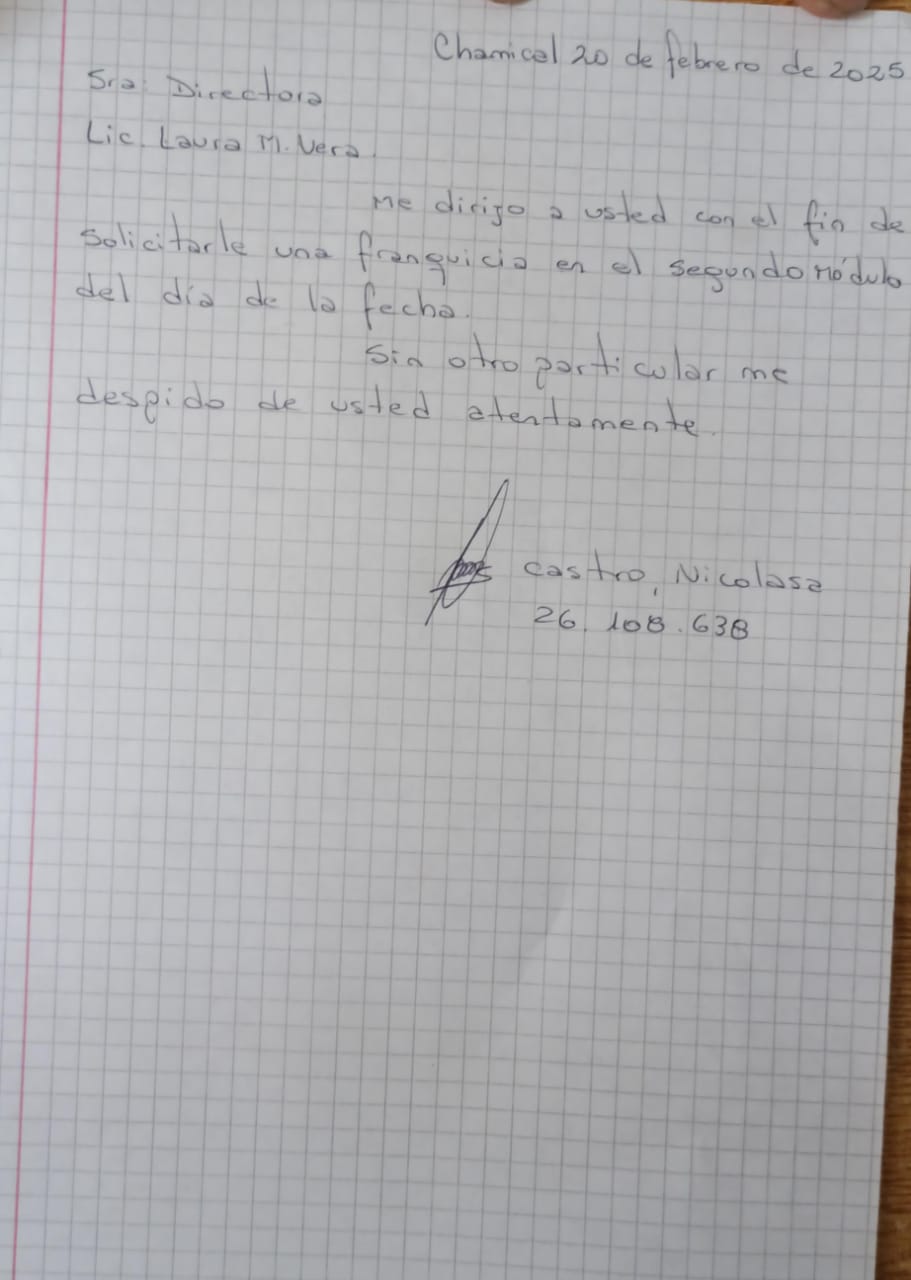 Chamical 20 de febrero de 2025
Sra: Directora
Lic. Laura M. Vera.
Me dirijo a usted con el fin de
solicitarle una franquicia en el segundo módulo
del día de la fecha.
Sin otro particular me
despido de usted atentamente.
Castro, Nicolasa
26.108.638